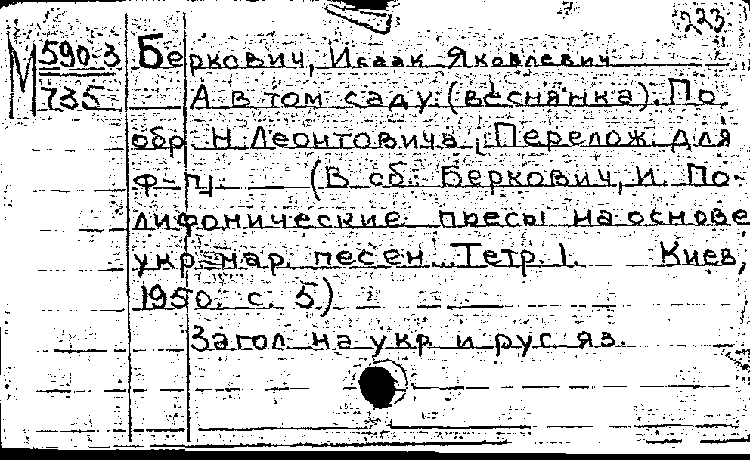 223
М 590-3 Беркович, Исаак Яковлевич
735 А в том саду. (веснянка). По
обр. Н. Леонтовича. Перелож. для
ф-п. (В сб.: Беркович, И. По-
лифонические пьесы на основе
укр. нар. песен. Тетр. 1. Киев,
1950. с. 5)
Загол. на укр и рус яз.